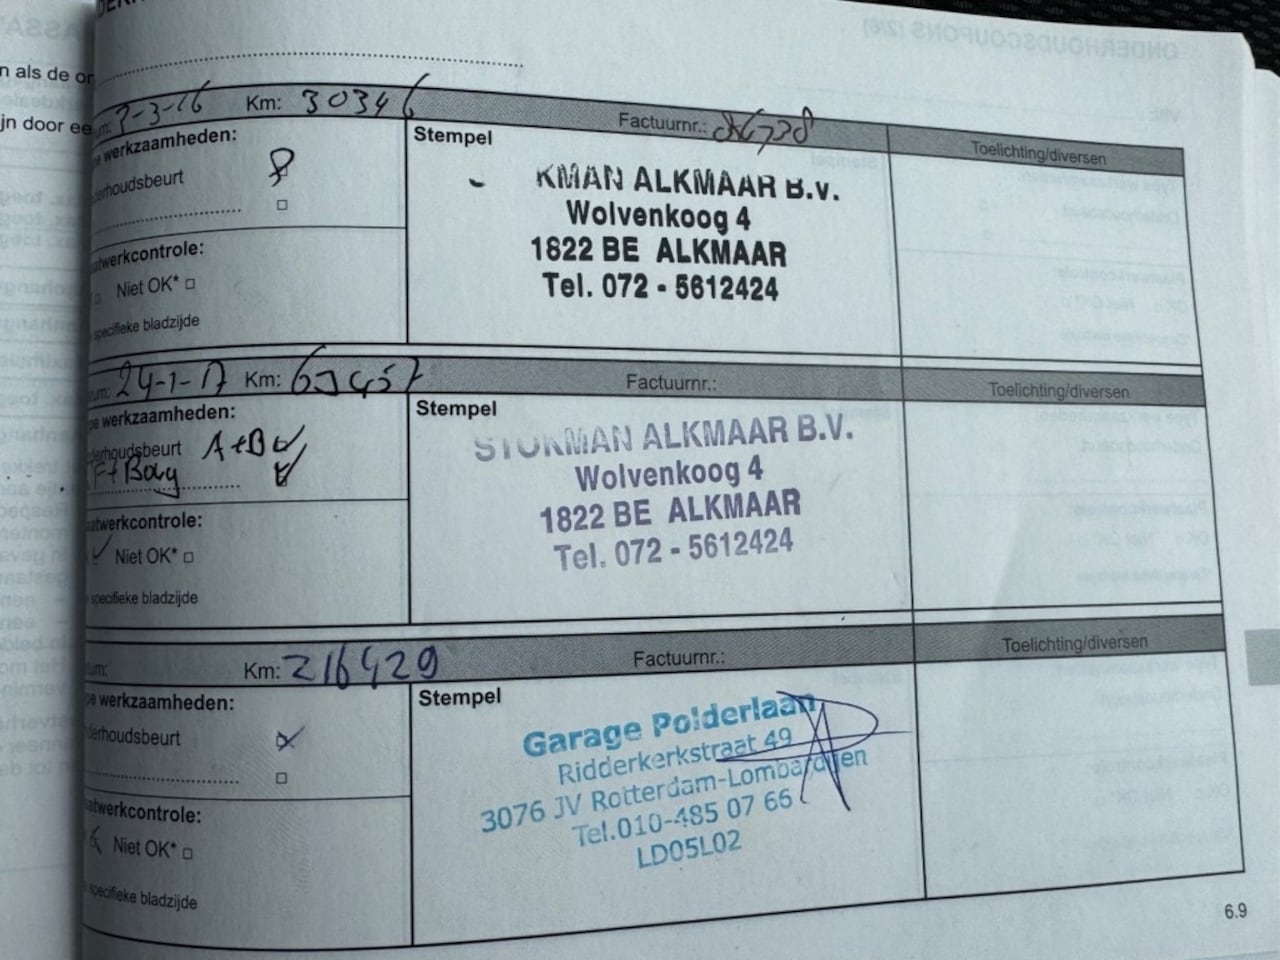 n als de or
jn door ee
3-16 Km: 30346 Factuurnr.: Toelichting/diversen
werkzaamheden: Stempel
derhoudsbeurt
KMAN ALKMAAR B.V.
Wolvenkoog 4
1822 BE ALKMAAR
Tel. 072 - 5612424
atwerkcontrole:
Niet OK*
specifieke bladzijde
24-1-17 Km: Factuurnr.: Toelichting/diversen
werkzaamheden: Stempel
derhoudsbeurt A+B
+ Body
STOKMAN ALKMAAR B.V.
Wolvenkoog 4
1822 BE ALKMAAR
Tel. 072 - 5612424
atwerkcontrole:
Niet OK*
specifieke bladzijde
Km: 216429 Factuurnr.: Toelichting/diversen
werkzaamheden: Stempel
derhoudsbeurt
Garage Polderlaan
Ridderkerkstraat 49
3076 JV Rotterdam-Lombardijen
Tel.010-485 07 66
LD05L02
atwerkcontrole:
Niet OK*
specifieke bladzijde
6.9